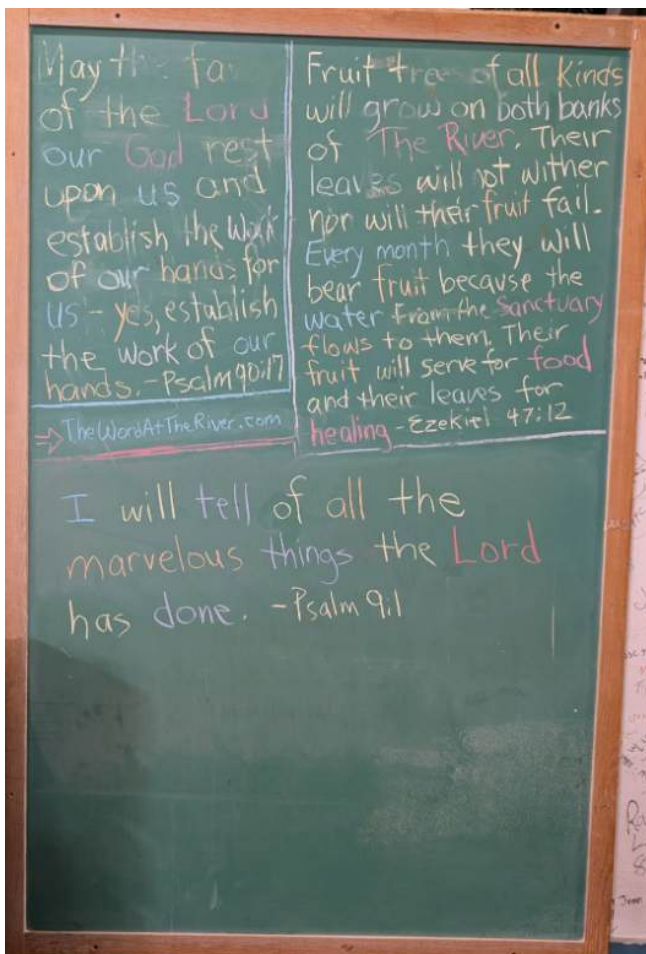 May the fa
of the Lord
our God rest
upon us and
establish the work
of our hands for
us - yes, establish
the work of our
hands. - Psalm 90:17
→ TheWordAtTheRiver.com
Fruit trees of all kinds
will grow on both banks
of The River. Their
leaves will not wither
nor will their fruit fail.
Every month they will
bear fruit because the
water From the Sanctuary
flows to them. Their
fruit will serve for food
and their leaves for
healing - Ezekiel 47:12
I will tell of all the
marvelous things the Lord
has done. - Psalm 9:1